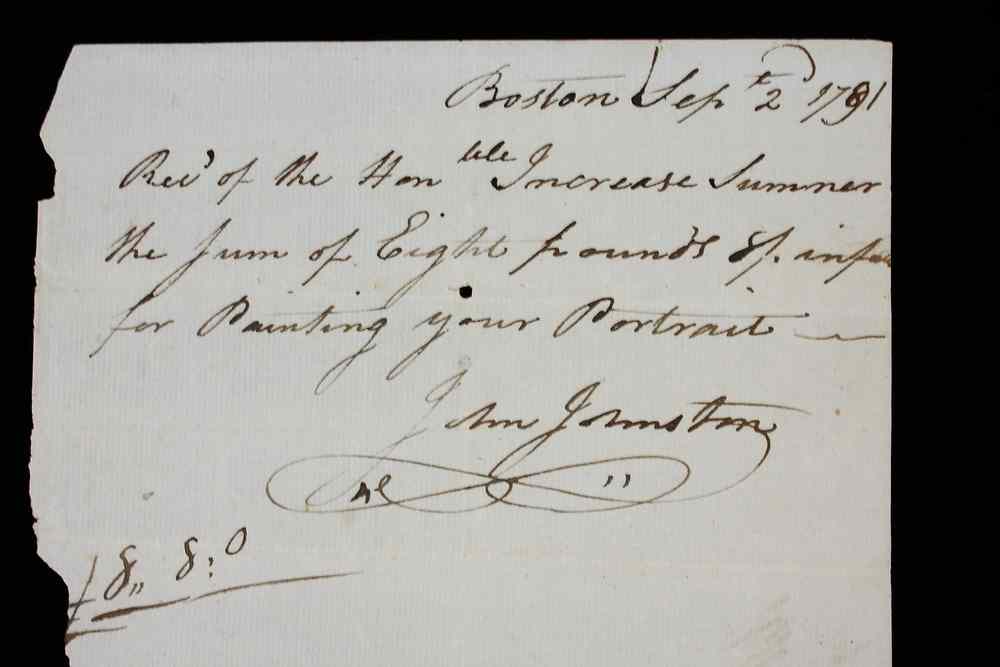 Boston Sept 2 1791
Rec'd of the Honble Increase Sumner
the sum of Eight pounds 8/. in full
for Painting your Portrait
John Johnston
£8,, 8:0